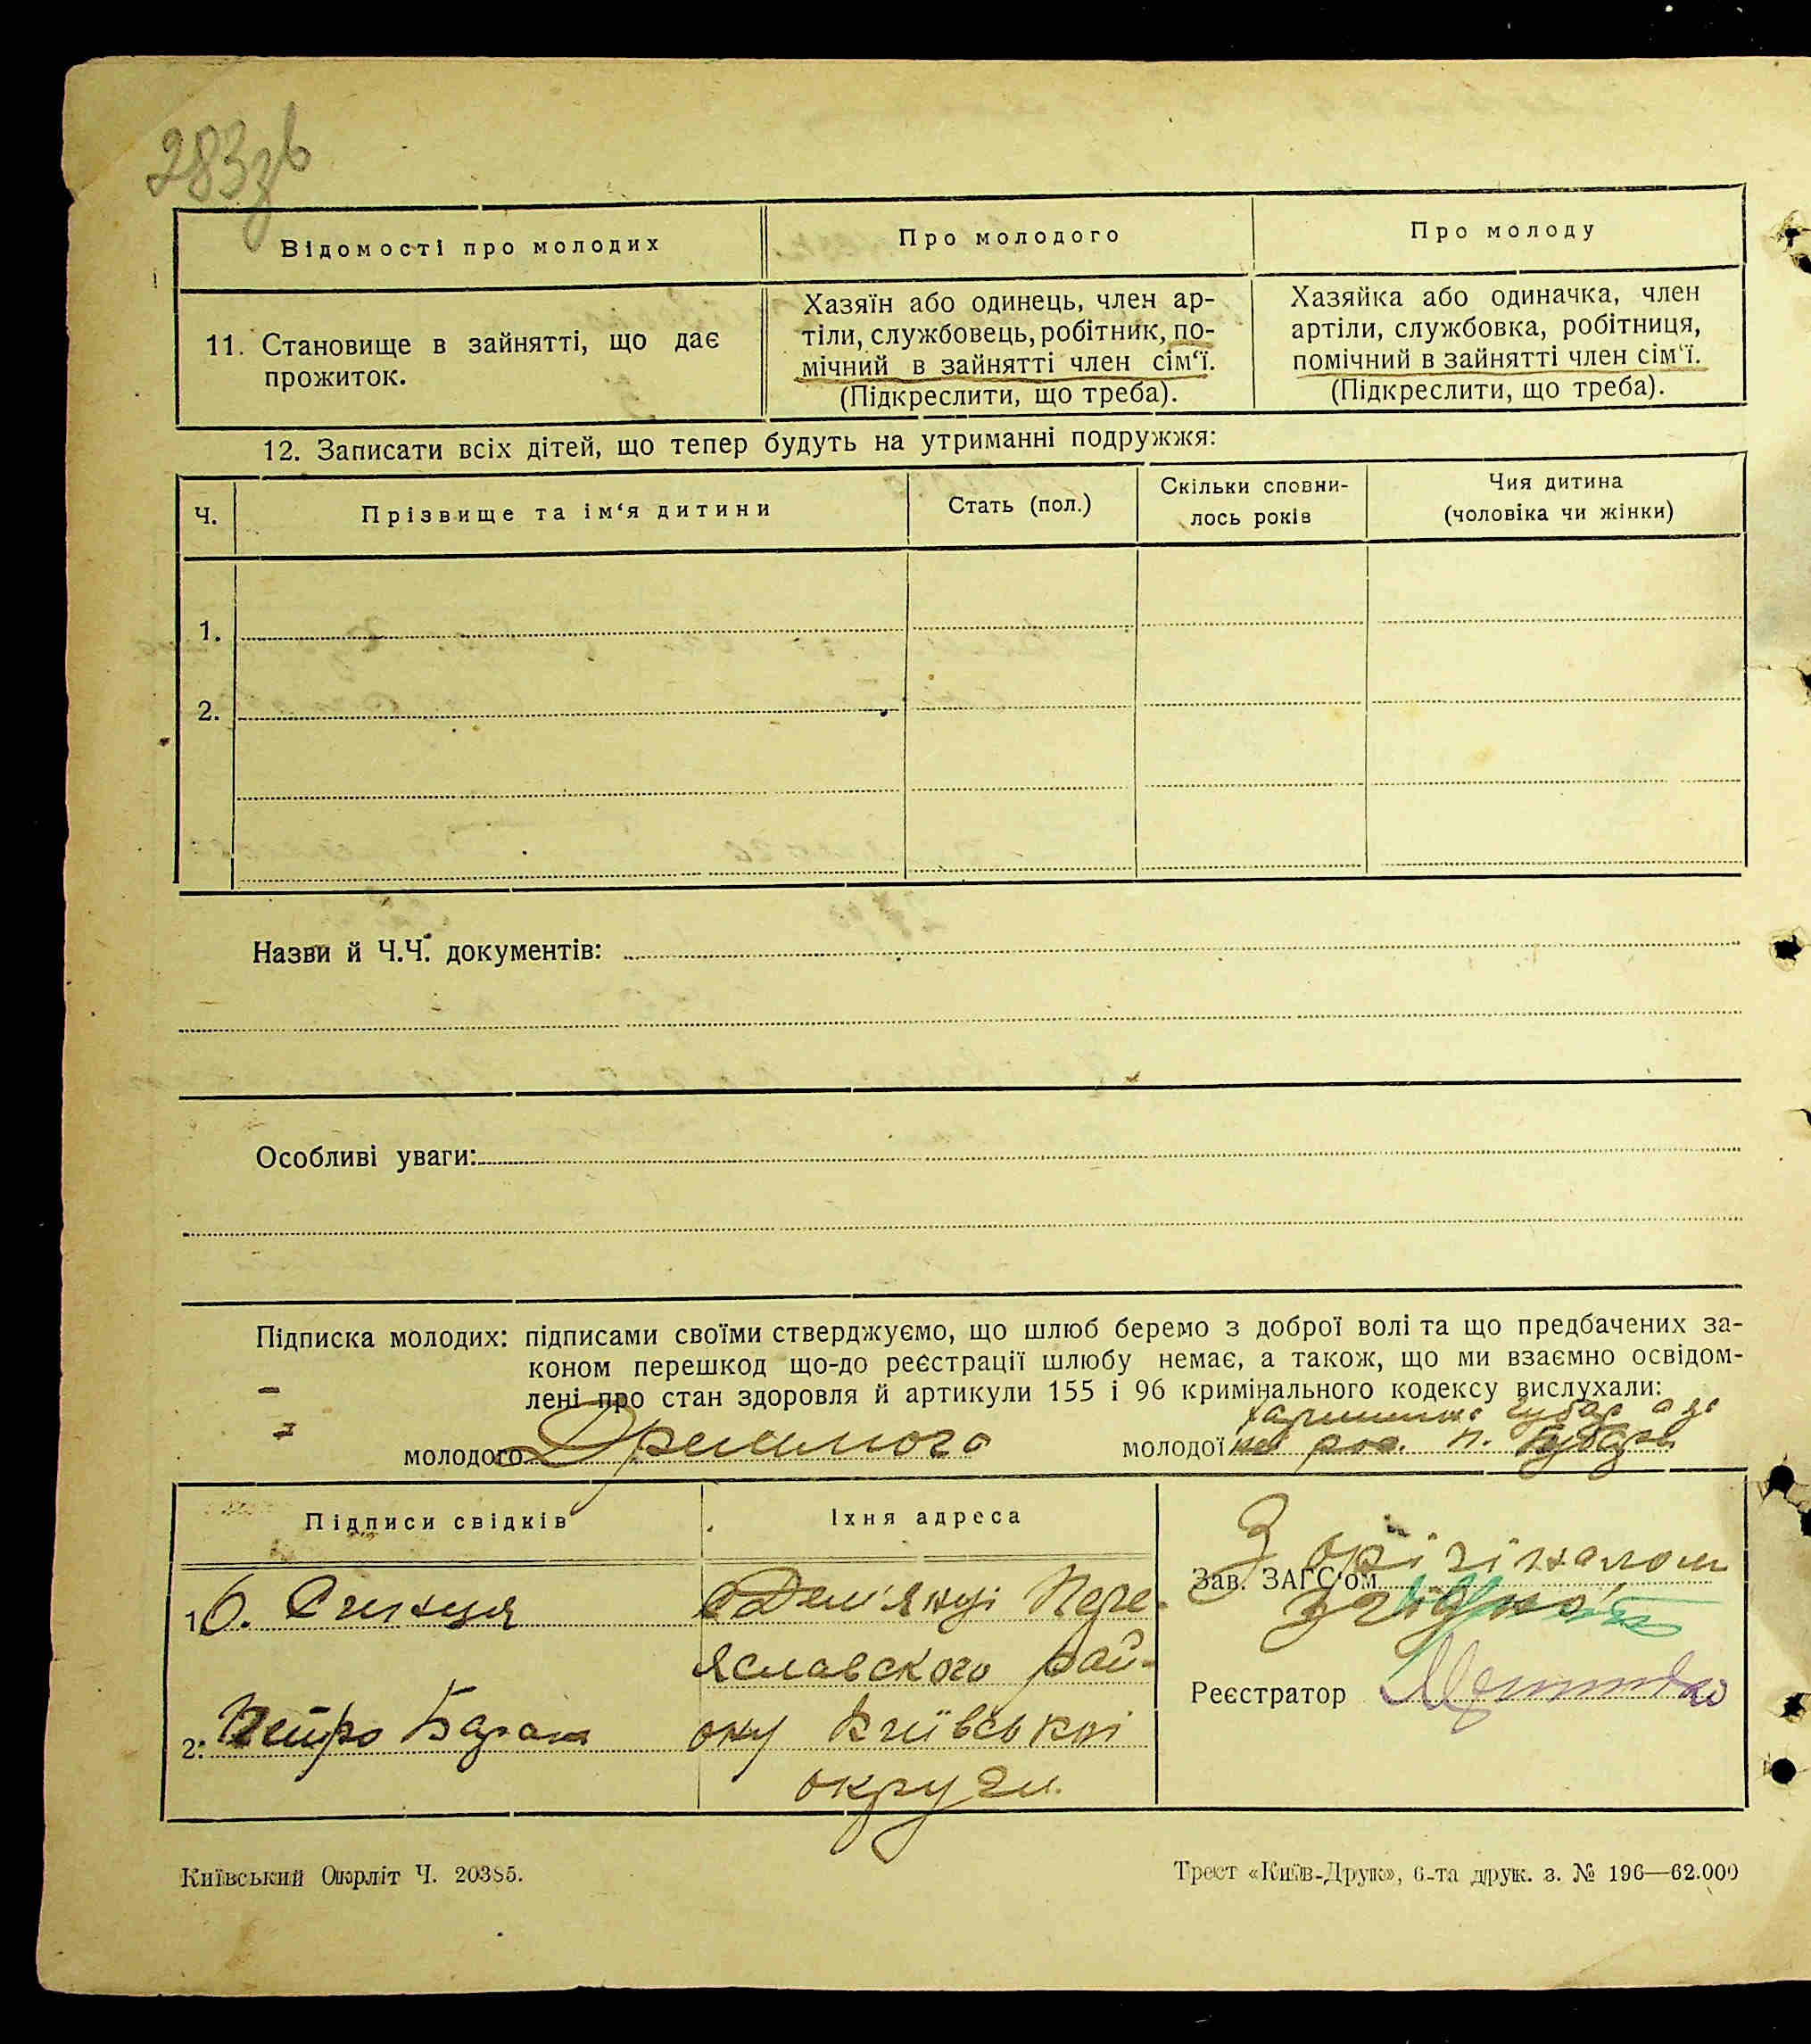 283зв
Відомості про молодих
Про молодого
Про молоду
11. Становище в зайнятті, що дає
прожиток.
Хазяїн або одинець, член ар-
тіли, службовець, робітник, по-
мічний в зайнятті член сім‘ї.
(Підкреслити, що треба).
Хазяйка або одиначка, член
артіли, службовка, робітниця,
помічний в зайнятті член сім‘ї.
(Підкреслити, що треба).
12. Записати всіх дітей, що тепер будуть на утриманні подружжя:
Ч.
Прізвище та ім‘я дитини
Стать (пол.)
Скільки сповни-
лось років
Чия дитина
(чоловіка чи жінки)
1.
2.
Назви й Ч.Ч. документів:
Особливі уваги:
Підписка молодих: підписами своїми стверджуємо, що шлюб беремо з доброї волі та що предбачених за-
коном перешкод що-до реєстрації шлюбу немає, а також, що ми взаємно освідом-
лені про стан здоровля й артикули 155 і 96 кримінального кодексу вислухали:
молодого
молодої
Підписи свідків
Їхня адреса
1.
с Дем'янці Пере-
яславского рай-
ону Київської
округи.
2. Петро Баран
З оріґіналом
Зав. ЗАГС‘ом
згідно
Реєстратор
Київський Окрліт Ч. 20385.
Трест «Київ-Друк», 6-та друк. з. № 196—62.000